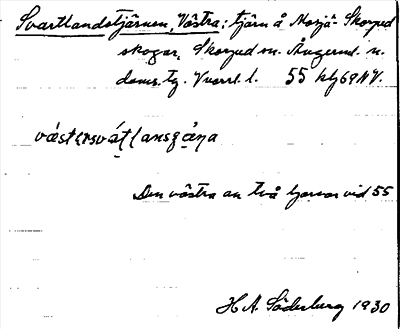 Svartlandstjärnen, Västra: tjärn å Mosjö- Skorped
skogar, Skorped sn. Ångerml. n.
doms. tg. Överrl. l. 55 kbl 69 NV.
västersvát̩lansʂæ̀ṇa
Den västra av två tjärnar vid 55
H. A. Söderberg 1930